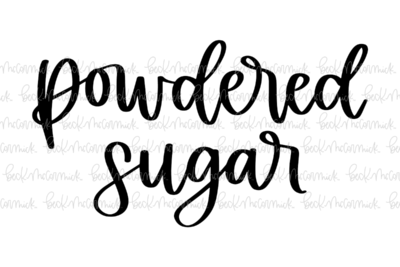 powdered
sugar